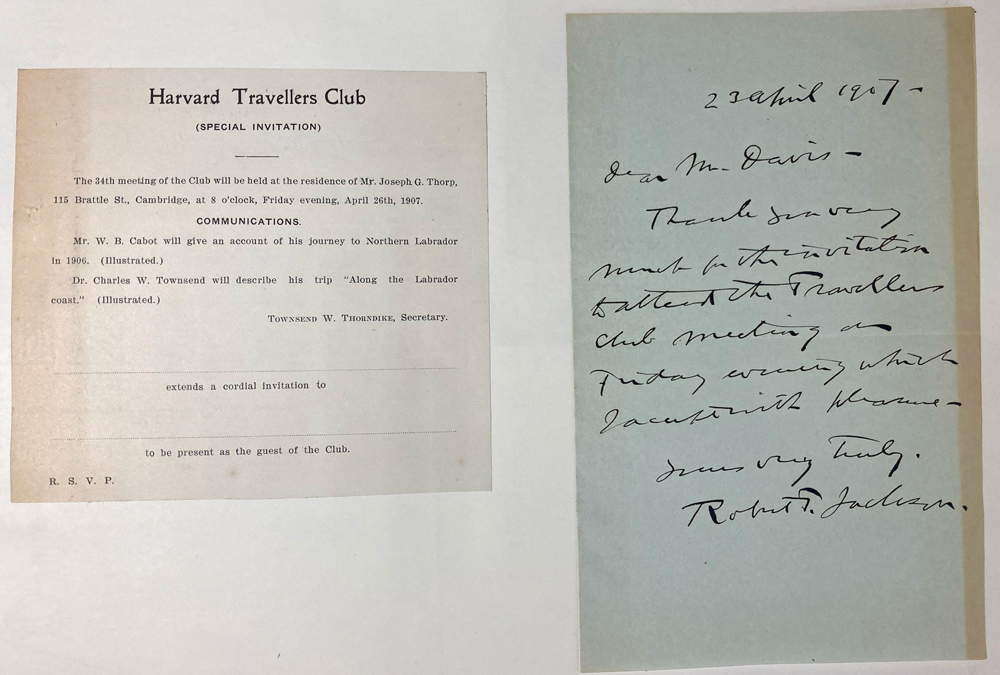 Harvard Travellers Club
(SPECIAL INVITATION)
The 34th meeting of the Club will be held at the residence of Mr. Joseph G. Thorp,
115 Brattle St., Cambridge, at 8 o'clock, Friday evening, April 26th, 1907.
COMMUNICATIONS.
Mr. W. B. Cabot will give an account of his journey to Northern Labrador
in 1906. (Illustrated.)
Dr. Charles W. Townsend will describe his trip "Along the Labrador
coast." (Illustrated.)
TOWNSEND W. THORNDIKE, Secretary.
extends a cordial invitation to
to be present as the guest of the Club.
R. S. V. P.
23 April 1907 -
Dear Mr. Davis -
Thank you very
much for the invitation
to attend the Travellers
Club meeting on
Friday evening which
I accept with pleasure -
Yours very truly.
Robert T. Jackson.